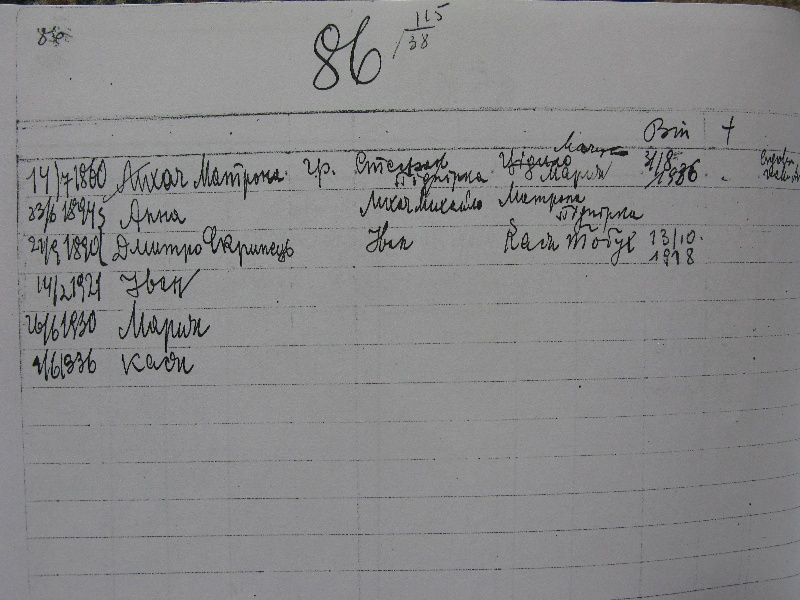 86
86 115/38
Він +
14/7 1860 Лихач Матрона гр. Стефан Підгірка Марія 31/8 1886
23/6 1894 Анна Лихач Михайло Матрона Підгірка
21/9 1890 Дмитро Скрипець Іван Кася Тобух 13/10. 1918
14/2 1921 Іван
26/6 1930 Марія
1/6 1936 Кася